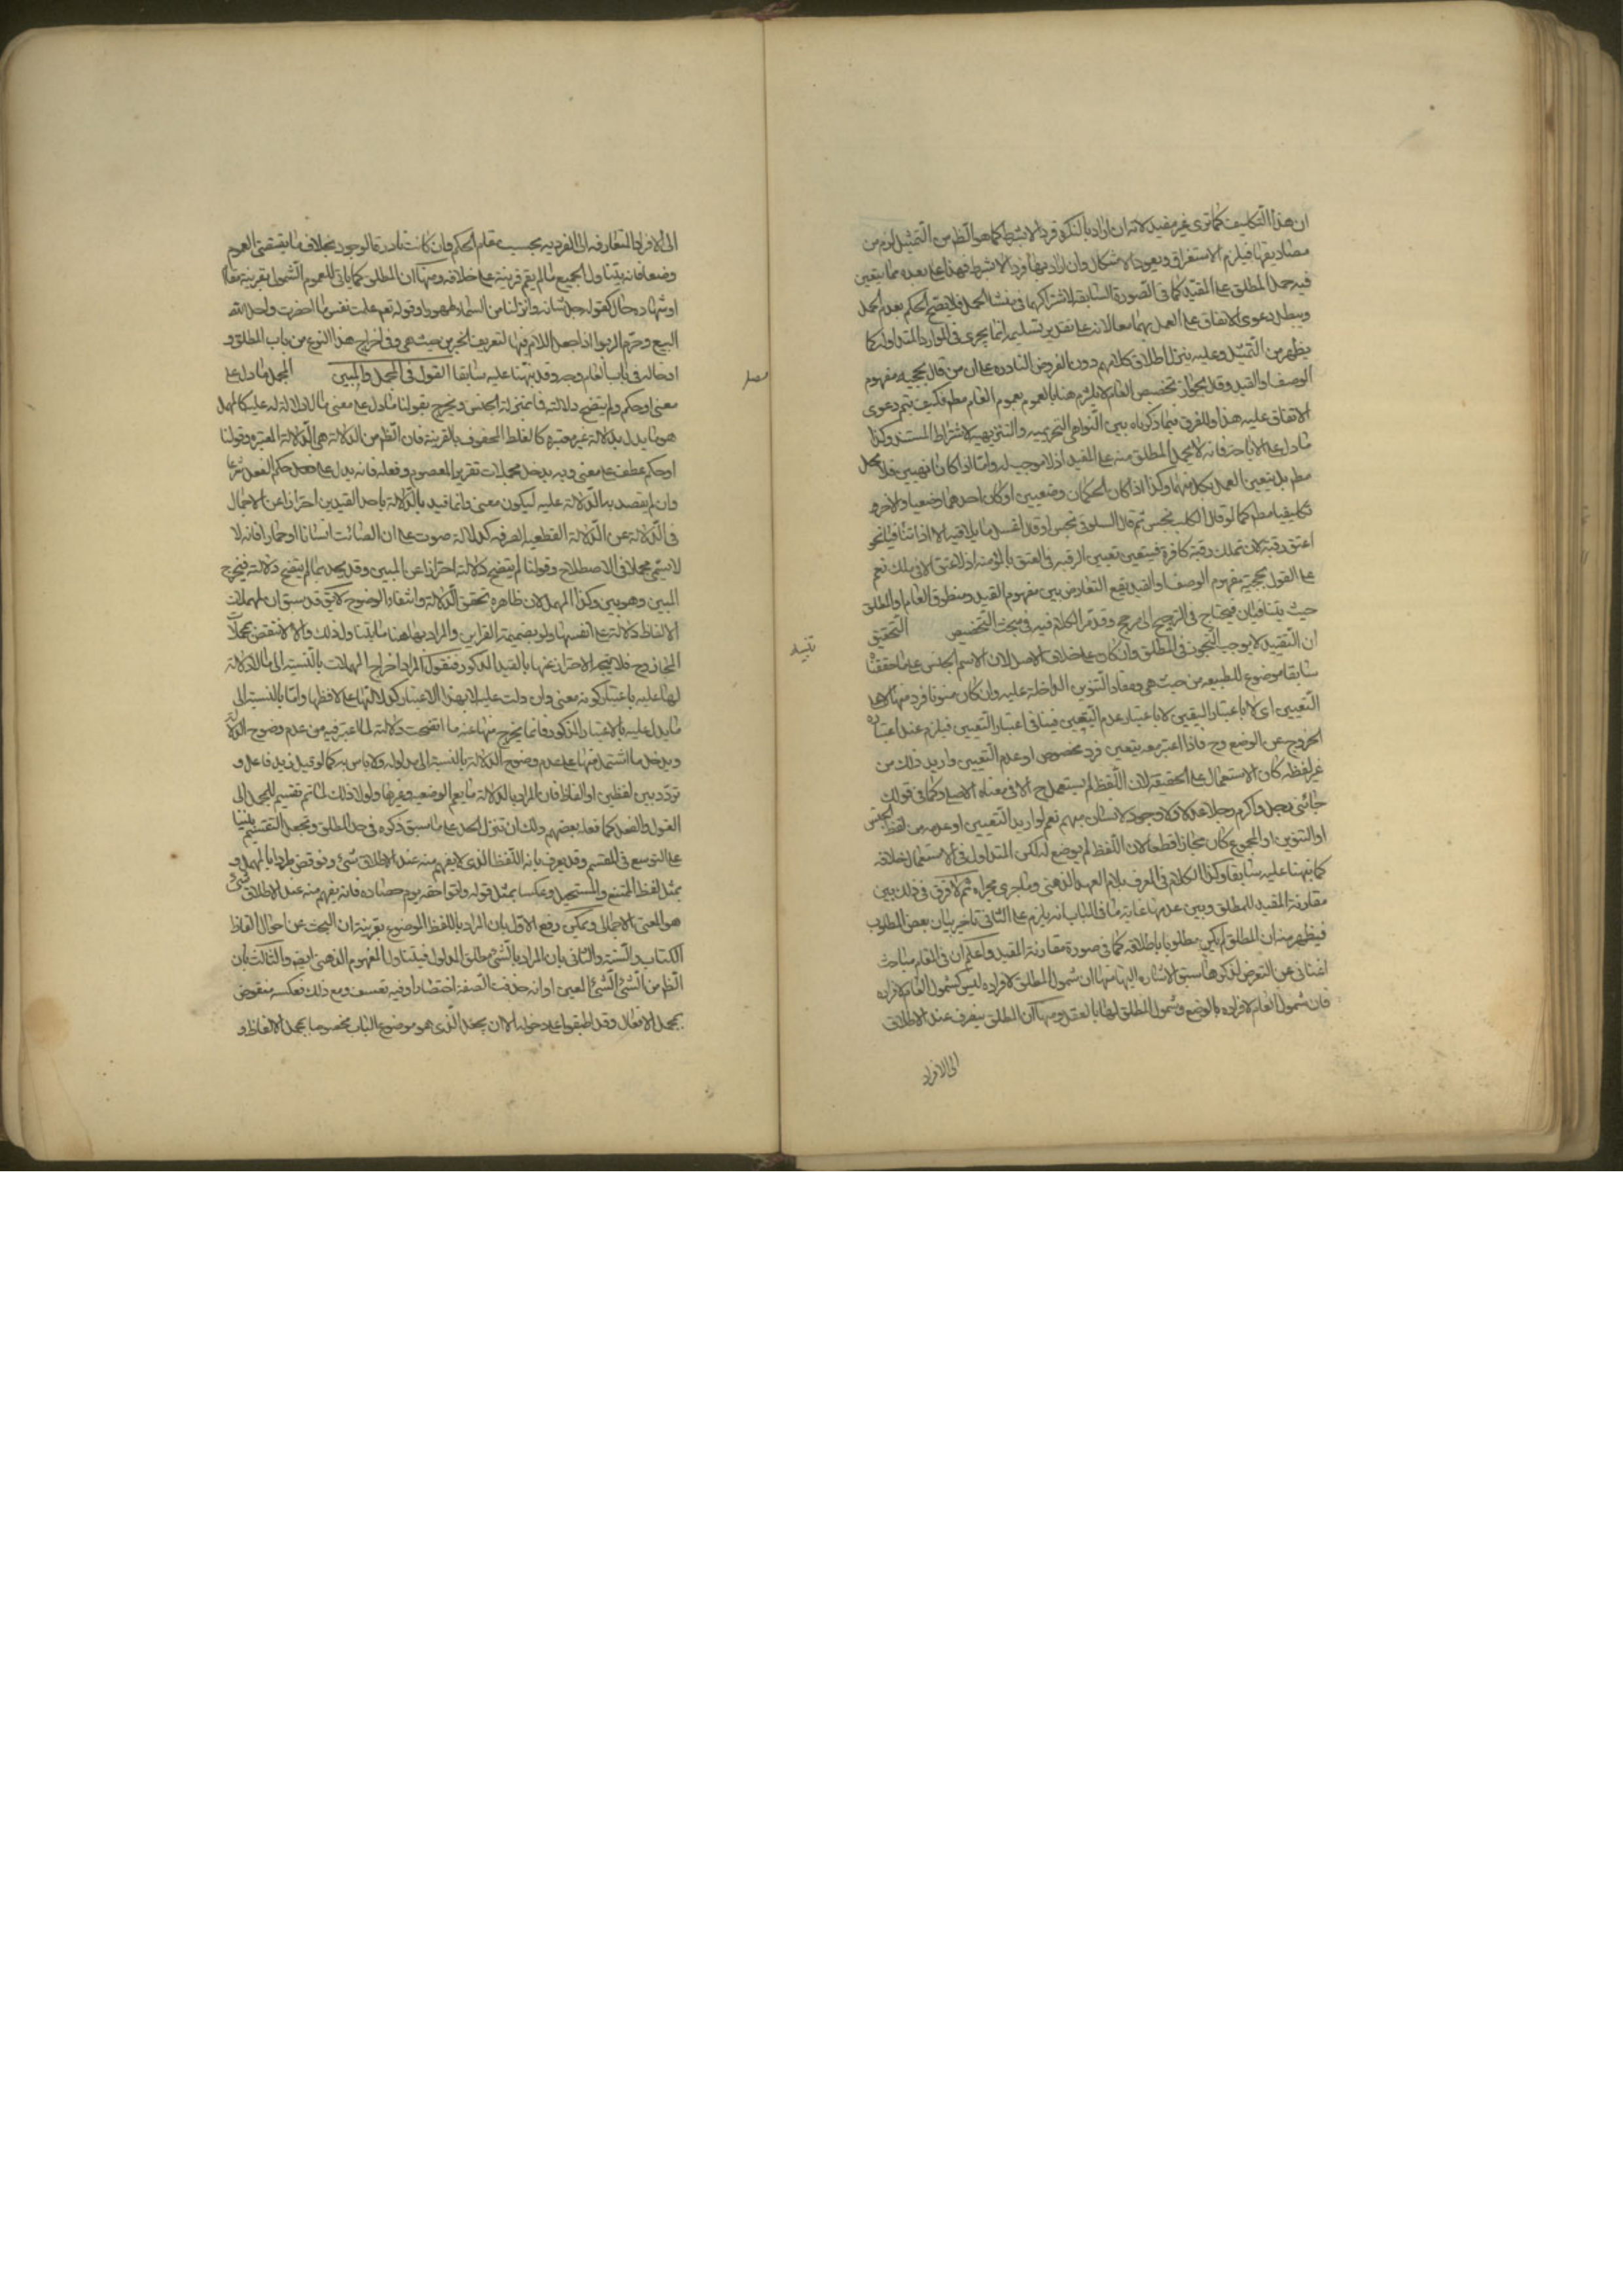 ان هذا التكليف كما ترى غير مفيد لانه ان اراد بالنكرة فردا لا بشرط كما هو الظ من التمثيل لزم من
مصاديقها فيلزم الاستغراق ويعود الاشكال وان اراد بها فردا لا بشرط فهذا على بعده مما يتعين
فيه حمل المطلق على المقيد كما فى الصورة السابقة لاشتراكهما فى منشا الحمل فلا يصح الحكم بعدم الحمل
ويبطل دعوى الاتفاق على العمل بهما معا لانه على تقدير تسليمه انما يجرى فى الموارد المتداولة كما
يظهر من التمثيل وعليه ينزل اطلاق كلامهم دون الفروض النادرة على ان من قال بحجية مفهوم
الوصف او القيد وقد يجواز تخصيص العام لا يلتزم هنا بالعموم بعموم العام مطم فكيف يتم دعوى
الاتفاق عليه هذا والفرق فيما ذكرناه بين النواهى التحريمية والتنزيهية لاشتراط المستند وكذا
ما دل على الاباحة فانه لا يحمل المطلق منه على المقيد اذ لا موجب له واما اذا كانا نهيين فلا يحمل
مطم بل يتعين العمل بكل منهما وكذا اذا كان الحكمان وضعيين او كان احدهما وضعيا والاخر
تكليفيا مطم كما لو قال الكلب نجس ثم قال السلوقى نجس او قال اغسل ما يلاقيه الا اذا تنافيا نحو
اعتق رقبة لا تملك رقبة كافرة فيتعين تعيين الرقبة فى العتق بالمؤمنة اذ لا عتق الا فى ملك نعم
على القول بحجية مفهوم الوصف او القيد يقع التعارض بين مفهوم القيد ومنطوق العام او المطلق
حيث يتنافيان فيحتاج فى الترجيح الى مرجح وقد مر الكلام فيه فى مبحث التخصيص التحقيق
تنبيه
ان التقييد لا يوجب التجوز فى المطلق وان كان على خلاف الاصل لان الاسم الجنس على ما حققنا
سابقا موضوع للطبيعه من حيث هى ومفاد التنوين الداخلة عليه وان كان منونا فرد منها لا بقيد
التعيين اى لا باعتبار التعيين لا باعتبار عدم التعيين فينافى اعتبار التعيين فيلزم عند اعتباره
الخروج عن الوضع وح فاذا اعتبر معه يتعين فرد مخصوص او عدم التعيين واريد ذلك من
غير لفظه كان الاستعمال على الحقيقة لان اللفظ لم يستعمل ح الا فى معناه الاصلى وكما فى قولك
جائنى رجل واكرم رجلا عدلا ولا وجود لانسان مبهم نعم لو اريد التعيين او عدمه من لفظ الجنس
او التنوين او المجموع كان مجازا قطعا لان اللفظ لم يوضع له لكن المتداول فى الاستعمال خلافه
كما نبهنا عليه سابقا وكذا الكلام فى المعرف بلام العهد الذهنى وما جرى مجراه ثم لا فرق فى ذلك بين
مقارنة المقيد للمطلق وبين عدمها غاية ما فى الباب انه يلزم على الثانى تاخير بيان بعض المطلوب
فيظهر منه ان المطلق لم يكن مطلوبا باطلاقه كما فى صورة مقارنة المقيد واعلم ان فى المقام مباحث
اغنانى عن التعرض لذكرها سبق الاشارة اليها منها ان شمول المطلق لافراده ليس كشمول العام لافراده
فان شمول العام لافراده بالوضع وشمول المطلق لها بالعقل ومنها ان المطلق ينصرف عند الاطلاق
الى الافراد
الى الافراد المتعارفة ان الفردية بحسب مقام الحكم وان كانت نادرة الوجود بخلاف ما يقتضى العموم
وضعا فانه يتناول الجميع ما لم يقم قرينة على خلافه ومنها ان المطلق كما ياتى للعموم الشمول بقرينة مقال
او شهادة حال كقوله جل شانه وانزلنا من السماء ماء طهورا وقوله تعم علمت نفس ما احضرت واحل الله
البيع وحرم الربوا اذا جعل اللام فيها لتعريف الجنس من حيث هى وفى اخراج هذا النوع من باب المطلق و
ادخاله فى باب العام وجه وقد نبهنا عليه سابقا القول فى المجمل والمبين المجمل ما دل على
فصل
معنى او حكم ولم يتضح دلالته فما بمنزلة الجنس ويخرج بقولنا ما دل على معنى ما لا دلالة له عليه كالمهمل
هو ما يدل بدلالة غير معتبره كالغلط المحفوف بالقرينة فان الظ من الدلالة هى الدلالة المعتبره وقولنا
او حكم عطف على معنى وبه يدخل مجملات تقرير المعصوم وفعله فانه يدل على حكم الفعل شرعا
وان لم يقصد به الدلالة عليه ليكون معنى وانما قيد بالدلالة باحد القيدين احترازا عن الاجمال
فى الدلالة عن الدلالة القطعية الصرفه كدلالة صوت على ان الصائت انسانا او حمارا فانه لا
لا يسمى مجملا فى الاصطلاح وقولنا لم يتضح دلالته احترازا عن المبين وقد يحد بما لم يتضح دلالته فيخرج
المبين وهو بين وكذا المهمل لان ظاهره تحقق الدلالة وانتفاء الوضوح لا يق قد سبق ان لمهملات
الالفاظ دلالة على انفسها ولو بضميمة القراين والمراد بها هنا ما يتناول ذلك والا لانتقض بمجملات
المجاز وح فلا يتجه الاحتراز عنها بالقيد المذكور فنقول المراد اخراج المهملات بالنسبة الى ما لا دلالة
لها عليه باعتبار كونه معنى وان دلت عليه لا بهذا الاعتبار كدلالتها على لافظها واما بالنسبة الى
ما يدل عليه بالاعتبار المذكور فانما يخرج منها عنه ما اتضحت دلالته لما اعتبر فيه من عدم وضوح الدلالة
ويدخل ما اشتمل منها على عدم وضوح الدلالة بالنسبة الى مدلوله ولا باس به كما لو قيل زيد فاعل و
تردد بين لفظين او الفاظ فان المراد بالدلالة ما يعم الوضعية وغيرها ولولا ذلك لما تم تقسيم المجمل الى
القول والفعل كما فعله بعضهم ولك ان تنزل الحد على ما سبق ذكره فى حد المطلق وتجعل التقسيم مبنيا
على التوسع فى المقسم وقد يعرف بانه اللفظ الذى لا يفهم منه عند الاطلاق شئ ونوقض طردا بالمهمل و
بمثل لفظ الممتنع والمستحيل وعكسا بمثل قوله واتوا حقه يوم حصاده فانه يفهم منه عند الاطلاق شئ
هو المعنى الاجمالى ويمكن رفع الاول بان المراد باللفظ الموضوع بقرينة ان البحث عن احوال الفاظ
الكتاب والسنة والثانى بان المراد بالشئ مطلق المدلول فيتناول المفهوم الذهنى ايضه والثالث بان
الظ من الشئ الشئ المعين او انه حذفت الصفة اختصارا وفيه تعسف ومع ذلك فعكسه منقوض
بمجمل الافعال وقد اطبقوا على دخوله الا ان يجعل الذى هو موضوع الباب مخصوصا بمجمل الالفاظ و